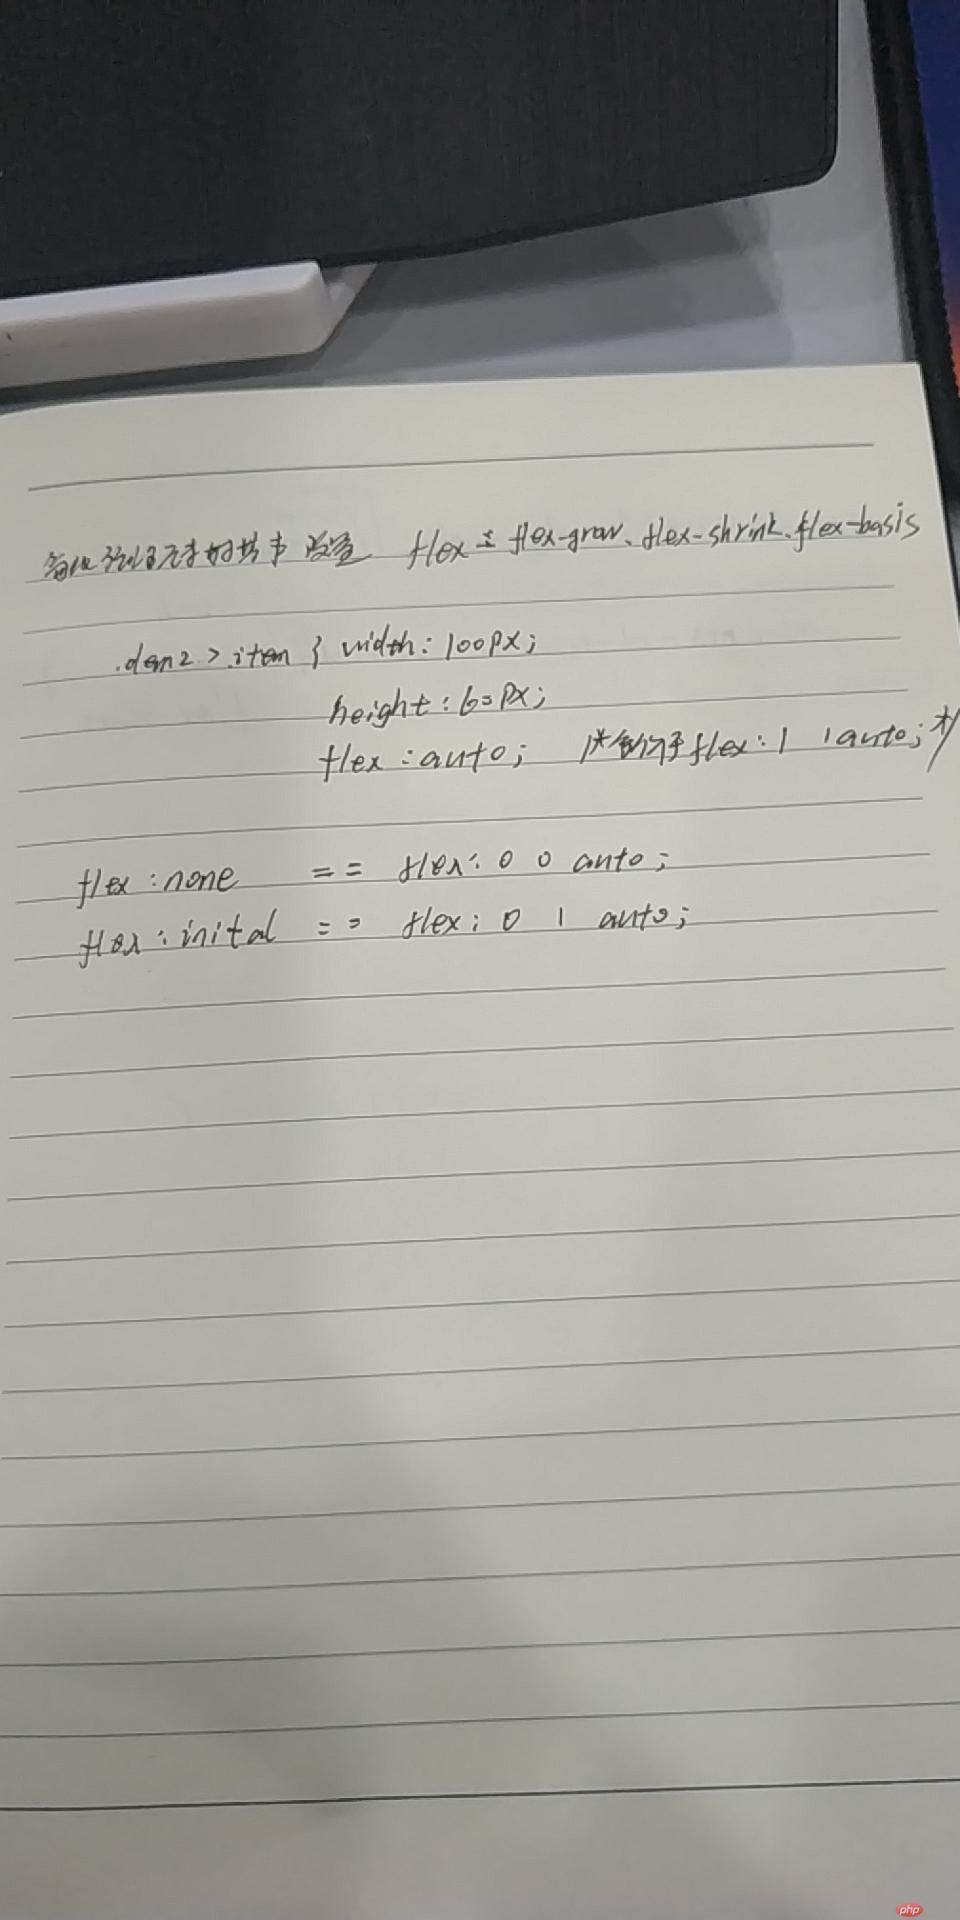 简化 弹性元素的基本设置 flex = flex-grow、flex-shrink、flex-basis
.dem2 > .item { width: 100px;
height: 60px;
flex : auto; /* 等价于 flex: 1 1 auto; */
flex : none == flex: 0 0 auto;
flex : inital == flex: 0 1 auto;
php